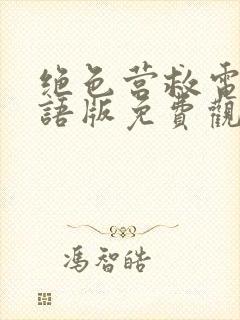 绝色营救電
語版免費觀
冯智皓